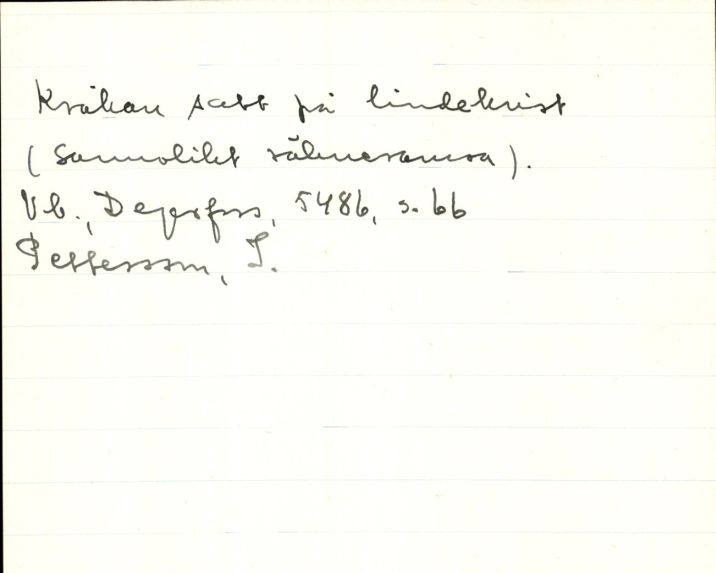 Kråkan satt på lindekvist
(Sannolikt räkneramsa).
Vb., Degerfors, 5486, s. 66
Pettersson, I.